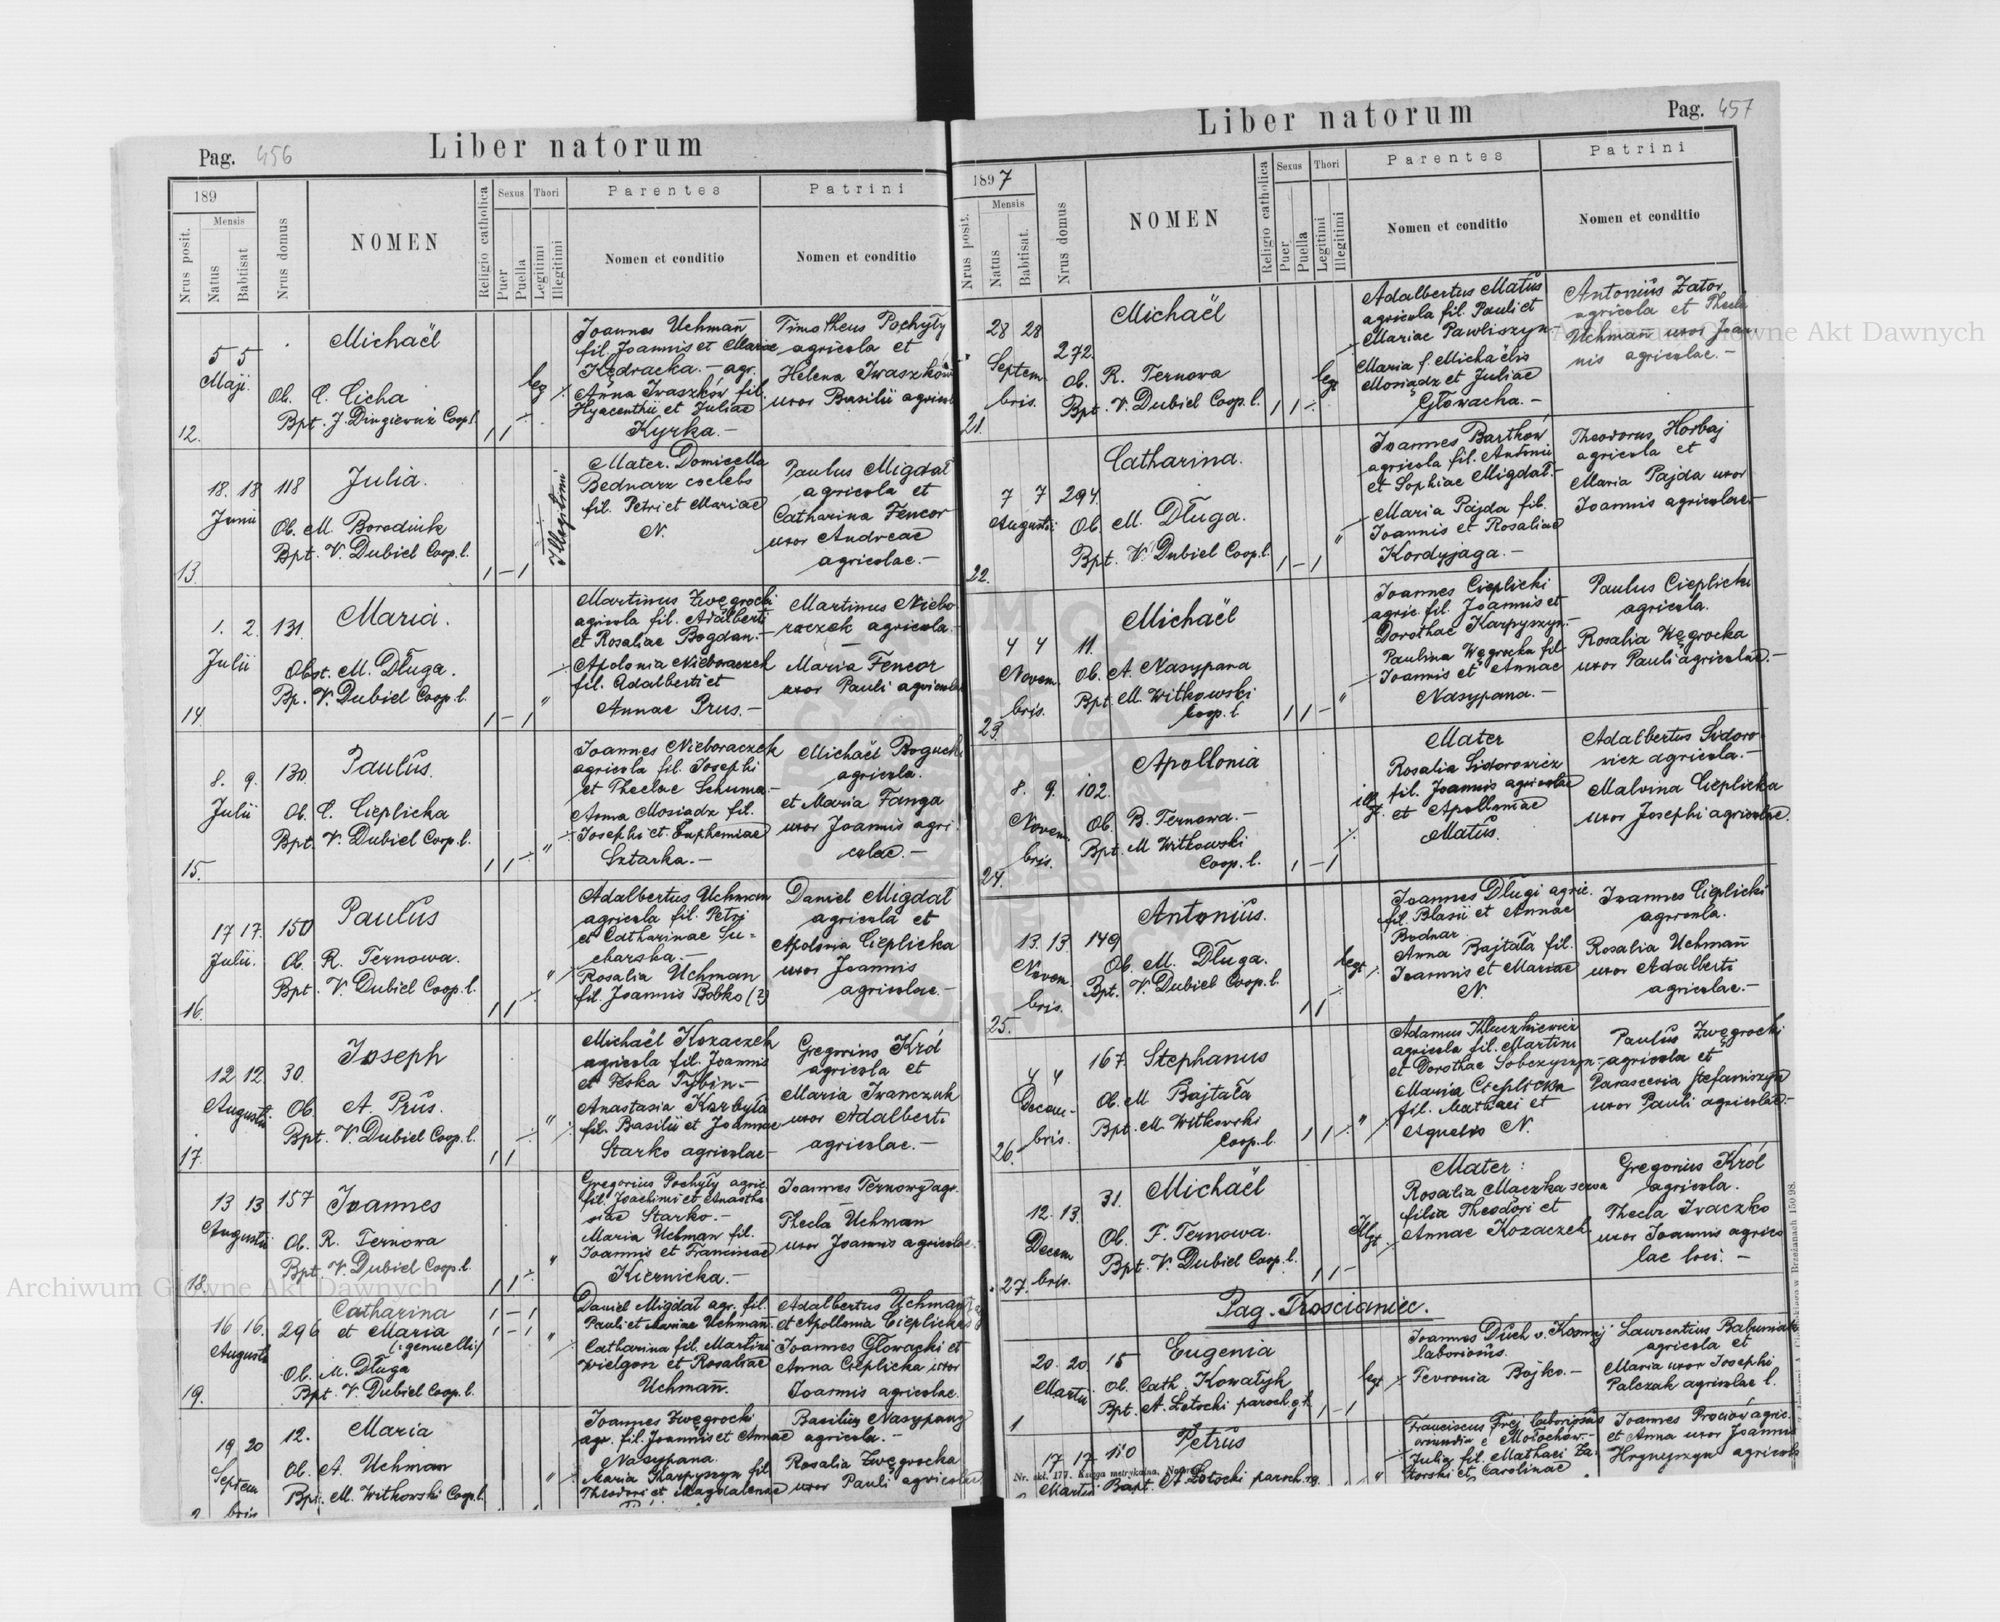 Pag. 456
Liber natorum
189
Nrus posit.
Mensis
Natus
Babtisat
Nrus domus
NOMEN
Religio catholica
Sexus
Puer
Puella
Thori
Legitimi
Illegitimi
Parentes
Nomen et conditio
Patrini
Nomen et conditio
12.
5 5
Maji
Michaël
Ob. C. Cicha
Bpt. J. Dingiewicz Coop. l.
leg
Joannes Uchman
fil. Joannis et Mariae
Kędracka. – agr.
Anna Iwaszków fil.
Hyacenthii et Juliae
Kyrka. –
Timotheus Pochyły
agricola et
Helena Iwaszków
uxor Basilii agricol
13.
18. 18
Junii
118
Julia.
Ob. M. Borodiuk
Bpt. V. Dubiel Coop. l.
1 – 1
Illegitimi
Mater. Domicella
Bednarz coelebs
fil. Petri et Mariae
N.
Paulus Migdał
agricola et
Catharina Fencor
uxor Andreae
agricolae. –
14.
1. 2.
Julii
131.
Maria.
Obst. M. Długa.
Bp. V. Dubiel Coop. l.
1 – 1 "
Martinus Zwęgrocki
agricola fil. Adalberti
et Rosaliae Bogdan. –
Apolonia Nieboraczek
fil. Adalberti et
Annae Prus. –
Martinus Niebo
raczek agricola. –
Maria Fencor
uxor Pauli agricolae
15.
8. 9.
Julii
130
Paulus.
Ob. C. Cieplicka
Bpt. V. Dubiel Coop. l.
Joannes Nieboraczek
agricola fil. Josephi
et Theclae Schuma –
Anna Mosiadz fil.
Josephi et Euphemiae
Sztarka. –
Michaël Bogucki
agricola.
et Maria Fanga
uxor Joannis agri
colae. –
16.
17 17.
Julii.
150
Paulus
Ob. R. Ternowa.
Bpt. V. Dubiel Coop. l.
Adalbertus Uchman
agricola fil. Petri
et Catharinae Su=
charska. –
Rosalia Uchman
fil. Joannis Bobko (?)
Daniel Migdał
agricola et
Apolonia Cieplicka
uxor Joannis
agricolae. –
17.
12 12.
Augusti
30.
Joseph
Ob. A. Prus.
Bpt. V. Dubiel Coop. l.
Michaël Kozaczek
agricola fil. Joannis
et Feska Tybin. –
Anastasia Korbyła
fil. Basilii et Joannae
Starko agricolae –
Gregorius Król
agricola et
Maria Iwanczuk
uxor Adalberti
agricolae. –
18.
13 13
Augusti
157
Joannes
Ob. R. Ternowa
Bpt. V. Dubiel Coop. l.
Gregorius Pochyły agric.
fil. Joachimi et Anasta
siae Starko. –
Maria Uchman fil.
Joannis et Franciscae
Kiernicka. –
Joannes Ternowy agr.
Thecla Uchman
uxor Joannis agricolae. –
19.
16 16.
Augusti
296
Catharina
et Maria
(: gemelli :)
Ob. M. Długa
Bpt. V. Dubiel Coop. l.
1 – 1
1 – 1
Daniel Migdał agr. fil.
Pauli et Mariae Uchman.
Catharina fil. Martini
Wielgon et Rosaliae
Uchman.
Adalbertus Uchman
et Apollonia Cieplicka
Joannes Głowacki et
Anna Cieplicka uxor
Joannis agricolae.
19 20
Septem
bris
12.
Maria
Ob. A. Uchman
Bpt. M. Witkowski Coop. l.
Joannes Zwęgrocki
agr. fil. Joannis et Annae
Nasypana.
Maria Karpyszyn fil.
Theodori et Magdalenae
Basilius Nasypany
agricola. –
Rosalia Zwęgrocka
uxor Pauli agricolae
Liber natorum
Pag. 457
1897
Nrus posit.
Mensis
Natus
Babtisat.
Nrus domus
NOMEN
Religio catholica
Sexus
Puer
Puella
Thori
Legitimi
Illegitimi
Parentes
Nomen et conditio
Patrini
Nomen et conditio
21.
28 28
Septem
bris.
272.
Michaël
Ob. R. Ternova
Bpt. V. Dubiel Coop. l.
leg
Adalbertus Matus
agricola fil. Pauli et
Mariae Pawliszyn
Maria f. Michaëlis
Mosiądz et Juliae
Głowacka. –
Antonius Zator
agricola et Thecla
Uchman uxor Joan
nis agricolae. –
22.
7 7
Augusti
294.
Catharina.
Ob. M. Długa.
Bpt. V. Dubiel Coop. l.
1 – 1
Joannes Bartków
agricola fil. Antonii
et Sophiae Migdał. –
Maria Pajda fil.
Joannis et Rosaliae
Kordyjaga. –
Theodorus Horbaj
agricola et
Maria Pajda uxor
Joannis agricolae. –
23.
4 4
Novem
bris.
11.
Michaël
Ob. A. Nasypana
Bpt. M. Witkowski
Coop. l.
1 1 –
Joannes Cieplicki
agric. fil. Joannis et
Dorothae Karpyszyn. –
Paulina Węgrocka fil.
Joannis et Annae
Nasypana. –
Paulus Cieplicki
agricola.
Rosalia Węgrocka
uxor Pauli agricolae. –
24.
8. 9.
Novem
bris.
102.
Apollonia
Ob. B. Ternowa. –
Bpt. M Witkowski
Coop. l.
1 – 1
Mater
Rosalia Sidorowicz
fil. Joannis agricolae
et Apolloniae
Matus.
Adalbertus Sidoro
wicz agricola. –
Malvina Cieplicka
uxor Josephi agricolae.
25.
13. 13.
Novem
bris.
149
Antonius.
Ob. M. Długa.
Bpt. V. Dubiel Coop. l.
1 1
legt
Joannes Długi agric.
fil. Blasii et Annae
Bodnar.
Anna Bajtała fil.
Joannis et Mariae
N.
Joannes Cieplicki
agricola.
Rosalia Uchman
uxor Adalberti
agricolae. –
26.
4 4
Decem-
bris.
167.
Stephanus
Ob. M Bajtała
Bpt. M. Witkowski
Coop. l.
Adamus Kluczkiewicz
agricola fil. Martini
et Dorothae Sobczyszyn. –
Maria Cieplicka
fil. Mathaei et
Agnetis N.
Paulus Zwęgrocki
agricola et
Parascevia Stefaniszyn
uxor Pauli agricolae. –
27.
12. 13.
Decem
bris.
31.
Michaël
Ob. F. Ternowa.
Bpt. V. Dubiel Coop. l.
1 1 –
Illgt
Mater:
Rosalia Maczka serva
filia Theodori et
Annae Kozaczek
Gregorius Król
agricola.
Thecla Iwaczko
uxor Joannis agrico
lae loci. –
Pag. Troscianiec.
1
20. 20
Martii
15
Eugenia
Ob. Cath. Kowałyk
Bpt. A. Łotocki paroch. g. k.
1 – 1
legt
Joannes Duch v. Kosmyj
laboriosus.
Fevronia Bojko. –
Laurentius Babuniak
agricola et
Maria uxor Josephi
Palczak agricolae l.
17 17
Martii
110
Petrus
Bapt. A. Łotocki paroch. rg.
Franciscus Frej laboriosus
oriundus e Mołochów. –
Julia fil. Mathaei Za
torski et Carolinae
Joannes Prociów agric.
et Anna uxor Joannis
Hryncyszyn agricol
Archiwum Główne Akt Dawnych
Archiwum Główne Akt Dawnych